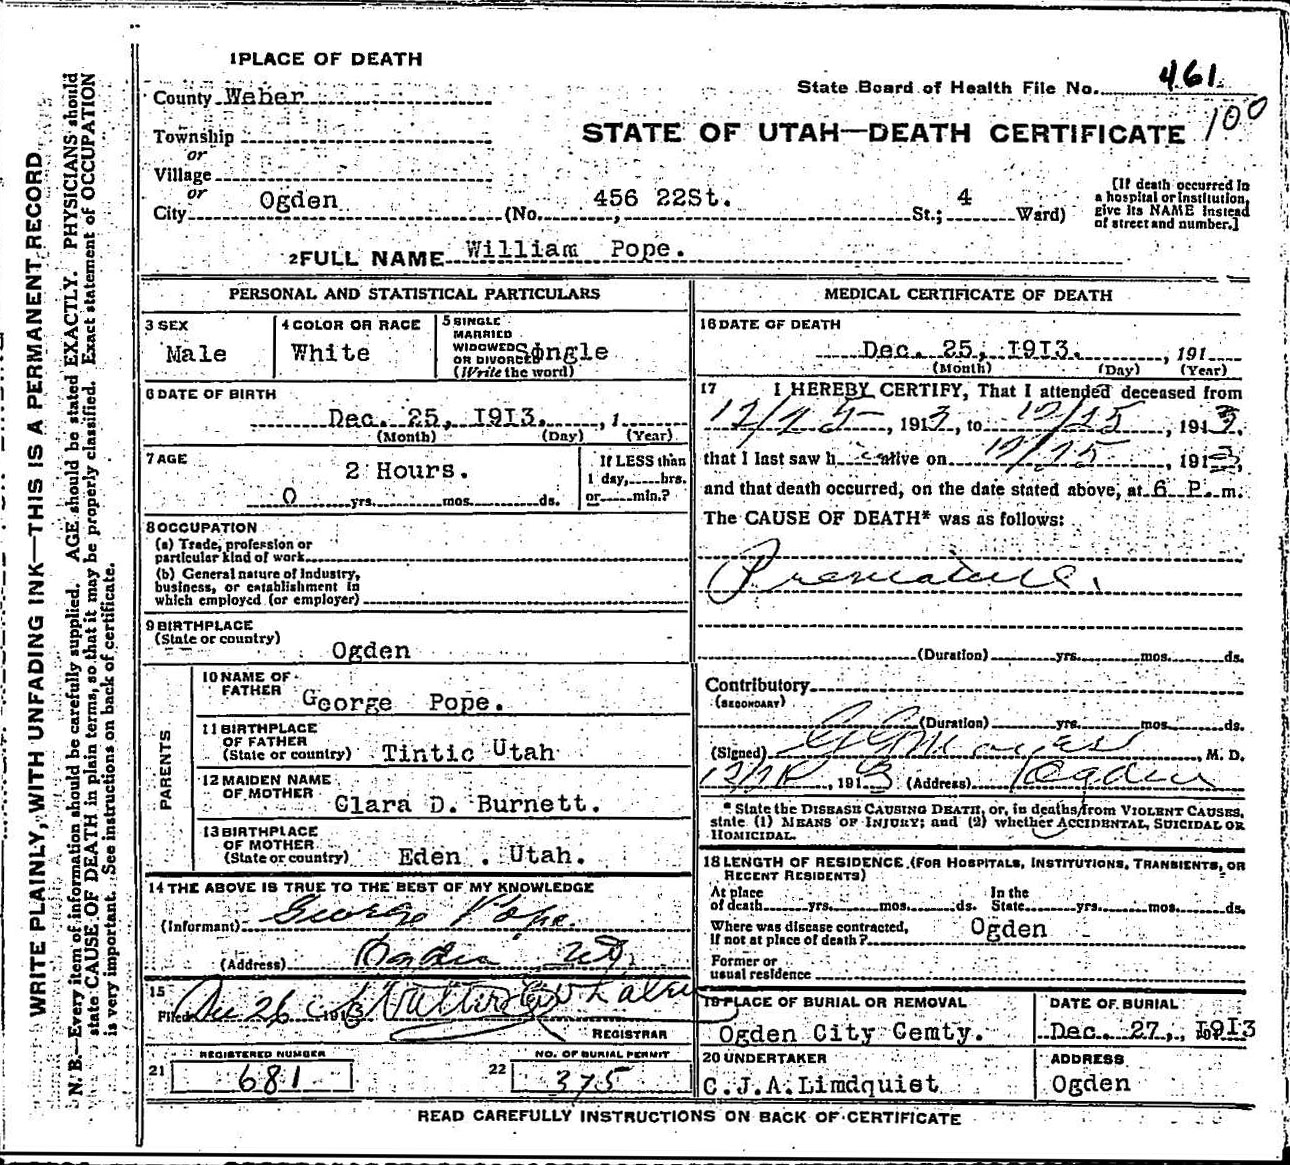 1 PLACE OF DEATH
County Weber
State Board of Health File No. 461
100
Township
or
STATE OF UTAH—DEATH CERTIFICATE
Village
or
City Ogden (No. 456 22St. St.; 4 Ward)
[If death occurred in
a hospital or institution,
give its NAME instead
of street and number.]
2 FULL NAME William Pope.
PERSONAL AND STATISTICAL PARTICULARS
3 SEX
Male
4 COLOR OR RACE
White
5 SINGLE
MARRIED
WIDOWED
OR DIVORCED
(Write the word)
Single
6 DATE OF BIRTH
Dec. 25, 1913. , 1
(Month) (Day) (Year)
7 AGE
2 Hours.
0 yrs. mos. ds.
If LESS than
1 day, hrs.
or min.?
8 OCCUPATION
(a) Trade, profession or
particular kind of work
(b) General nature of industry,
business, or establishment in
which employed (or employer)
9 BIRTHPLACE
(State or country)
Ogden
PARENTS
10 NAME OF
FATHER
George Pope.
11 BIRTHPLACE
OF FATHER
(State or country)
Tintic Utah
12 MAIDEN NAME
OF MOTHER
Clara D. Burnett.
13 BIRTHPLACE
OF MOTHER
(State or country)
Eden . Utah.
14 THE ABOVE IS TRUE TO THE BEST OF MY KNOWLEDGE
(Informant) George Pope.
(Address) Ogden Ut.
15
Filed Dec 26 1913 Walter
REGISTRAR
21
REGISTERED NUMBER
681
22
NO. OF BURIAL PERMIT
375
MEDICAL CERTIFICATE OF DEATH
16 DATE OF DEATH
Dec. 25, 1913. , 191
(Month) (Day) (Year)
17 I HEREBY CERTIFY, That I attended deceased from
12/25 , 1913, to 12/25 , 1913,
that I last saw h alive on 12/25 , 1913,
and that death occurred, on the date stated above, at 6 P. m.
The CAUSE OF DEATH* was as follows:
Premature.
(Duration) yrs. mos. ds.
Contributory
(SECONDARY)
(Duration) yrs. mos. ds.
(Signed) M. D.
, 1913 (Address) Ogden
* State the DISEASE CAUSING DEATH, or, in deaths from VIOLENT CAUSES,
state (1) MEANS OF INJURY; and (2) whether ACCIDENTAL, SUICIDAL OR
HOMICIDAL.
18 LENGTH OF RESIDENCE (FOR HOSPITALS, INSTITUTIONS, TRANSIENTS, OR
RECENT RESIDENTS)
At place In the
of death yrs. mos. ds. State yrs. mos. ds.
Where was disease contracted,
if not at place of death? Ogden
Former or
usual residence
19 PLACE OF BURIAL OR REMOVAL
Ogden City Cemty.
DATE OF BURIAL
Dec. 27, 1913
20 UNDERTAKER
C.J.A.Limdquist
ADDRESS
Ogden
READ CAREFULLY INSTRUCTIONS ON BACK OF CERTIFICATE
WRITE PLAINLY, WITH UNFADING INK—THIS IS A PERMANENT RECORD
N. B.—Every item of information should be carefully supplied. AGE should be stated EXACTLY. PHYSICIANS should
state CAUSE OF DEATH in plain terms, so that it may be properly classified. Exact statement of OCCUPATION
is very important. See instructions on back of certificate.